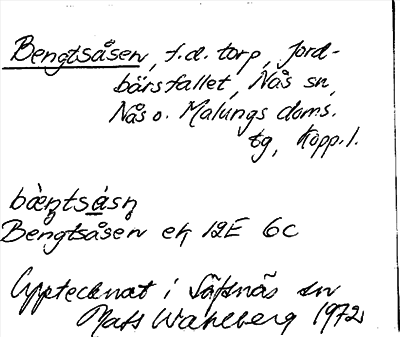 Bengtsåsen, f.d. torp, Jord-
bärsfallet, Nås sn,
Nås o. Malungs doms.
tg, Kopp. l.
bæ̀ŋtsåsn̥
Bengtsåsen ek 12E 6c
Upptecknat i Säfsnäs sn
Mats Wahlberg 1972